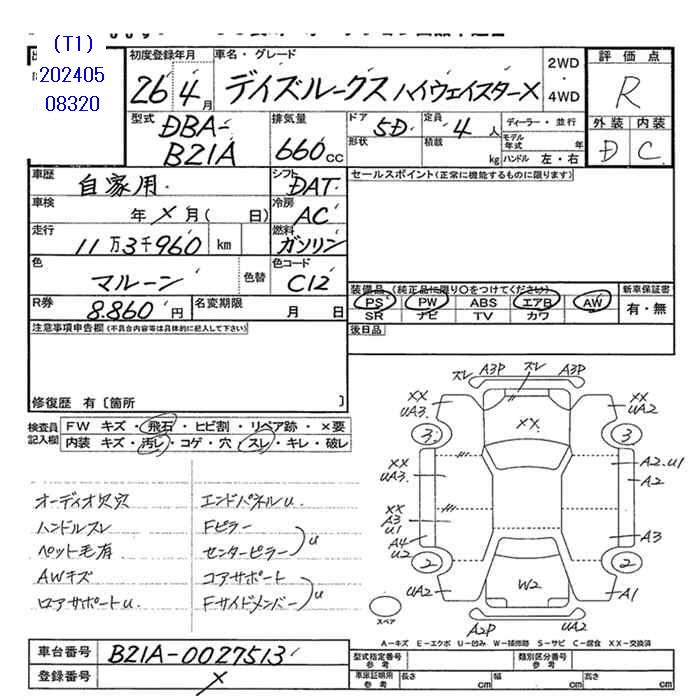 (T1)
202405
08320
初度登録年月
車名・グレード
26年4月
デイズルークス ハイウェイスターX
2WD
・
4WD
評価点
R
外装 内装
D C
型式
DBA-
B21A
排気量
660cc
ドア 5D
形状
定員 4人
積載 kg
ディーラー・並行
モデル年式 年
ハンドル 左・右
車歴 自家用
シフト DAT
セールスポイント(正常に機能するものに限ります)
車検 年 × 月( 日)
冷房 AC
走行 11万3千960 km
燃料 ガソリン
色 マルーン 色替
色コード C12
装備品(純正品に限り○をつけてください)
新車保証書
PS PW ABS エアB AW
有・無
SR ナビ TV カワ
R券 8.860円
名変期限 月 日
後日品
注意事項申告欄(不具合内容等は具体的に記入して下さい)
修復歴 有〔箇所 〕
検査員記入欄
FW キズ・飛石・ヒビ割・リペア跡・×要
内装 キズ・汚レ・コゲ・穴・スレ・キレ・破レ
オーディオ欠穴 エンドパネルu.
ハンドルスレ Fピラー
ペット毛有 センターピラー u
AWキズ コアサポート
ロアサポートu. Fサイドメンバー u
スレ A3P スレ A3P
XX UA3. XX XX UA2
3 3
XX UA3. A2.U1
A2
XX
A3
U1
A4
U2
A3
2 2
UA2 W2 A1
A2P UA2
スペア
A-キズ E-エクボ U-凹み W-補修跡 S-サビ C-腐食 XX-交換済
車台番号 B21A-0027513
登録番号 ×
型式指定番号 参考
類別区分番号 参考
車庫証明用 参考
長さ cm 幅 cm 高さ cm